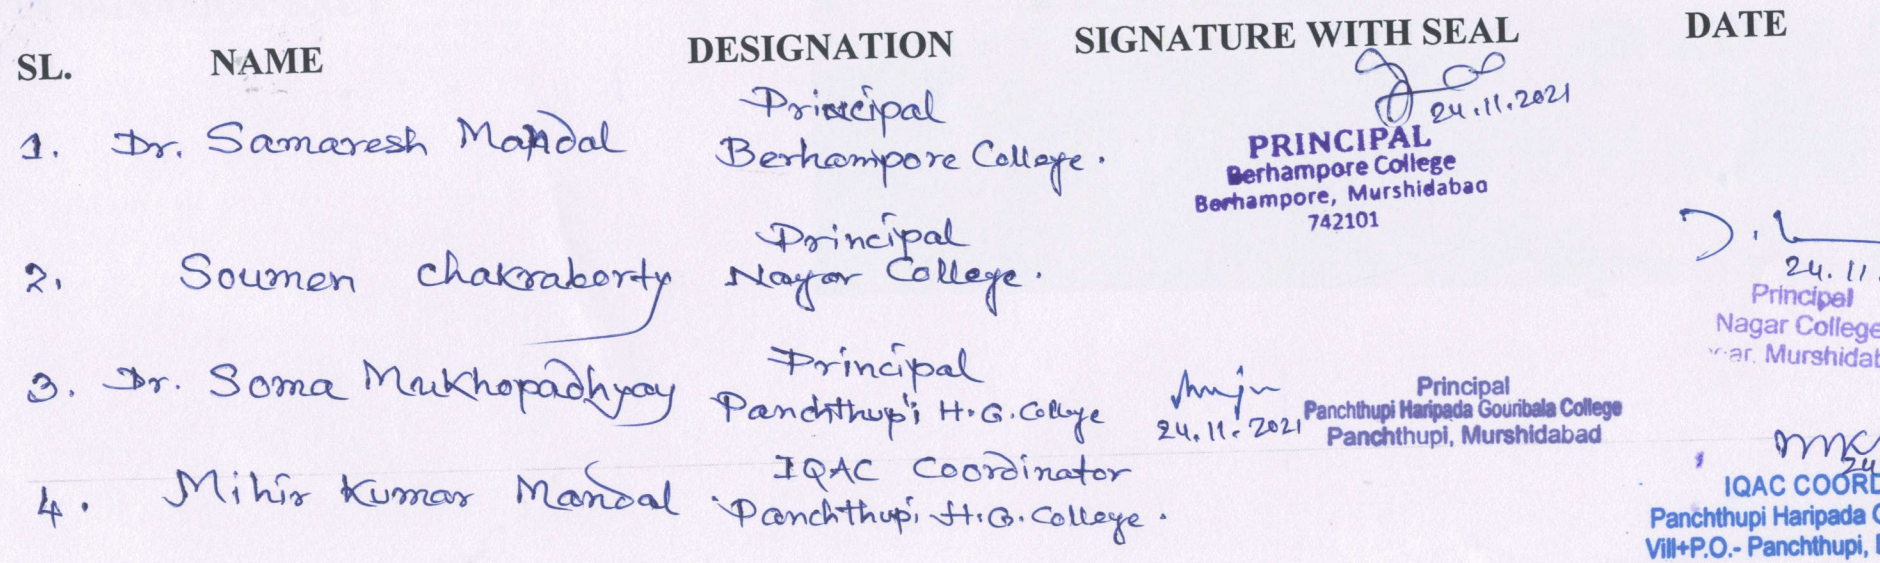 SL. NAME DESIGNATION SIGNATURE WITH SEAL DATE
24.11.2021
1. Dr. Samaresh Mandal Principal
Berhampore College.
PRINCIPAL
Berhampore College
Berhampore, Murshidabad
742101
2. Soumen Chakraborty Principal
Nagar College.
24.11.
Principal
Nagar College
ar, Murshidab
3. Dr. Soma Mukhopadhyay Principal
Panchthupi H.G. College
24.11.2021
Principal
Panchthupi Haripada Gouribala College
Panchthupi, Murshidabad
4. Mihir Kumar Mandal IQAC Coordinator
Panchthupi H.G. College.
24
IQAC COORD
Panchthupi Haripada G
Vill+P.O.- Panchthupi,